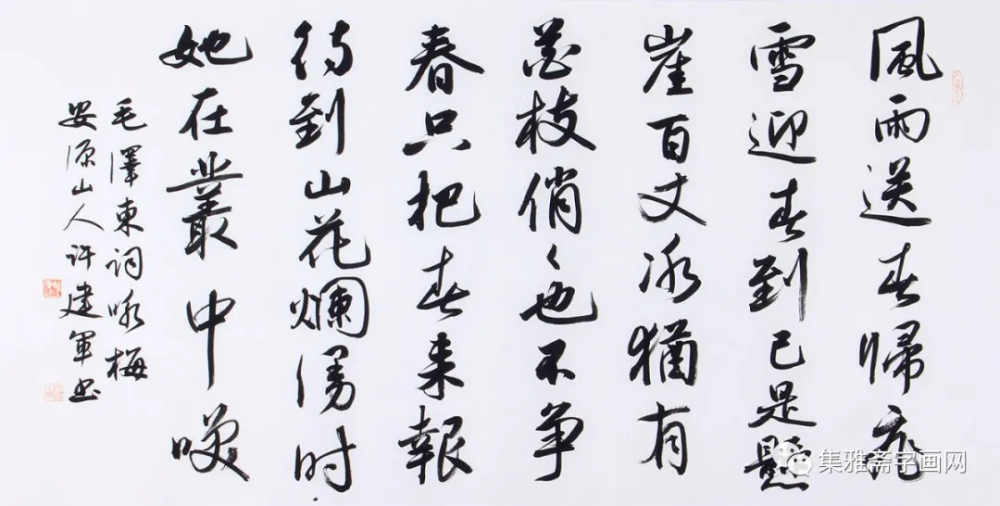 風雨送春歸飛
雪迎春到已是懸
崖百丈冰猶有
花枝俏々也不争
春只把春来報
待到山花爛漫时
她在叢中咲
毛澤東词咏梅
安源山人许建軍书
集雅斋字画网